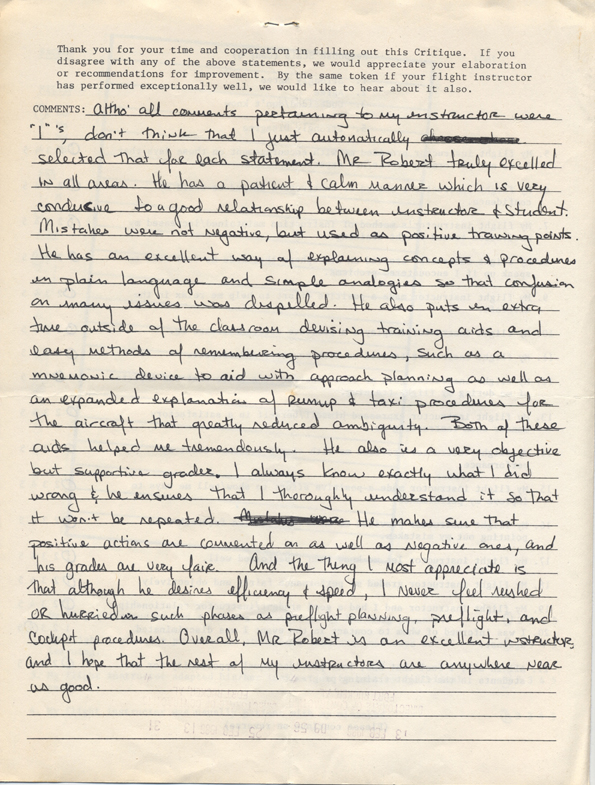 Thank you for your time and cooperation in filling out this Critique. If you
disagree with any of the above statements, we would appreciate your elaboration
or recommendations for improvement. By the same token if your flight instructor
has performed exceptionally well, we would like to hear about it also.
COMMENTS: Altho' all comments pertaining to my instructor were
"1"'s, don't think that I just automatically
selected that for each statement. Mr Robert truly excelled
in all areas. He has a patient & calm manner which is very
conducive to a good relationship between instructor & student.
Mistakes were not negative, but used as positive training points.
He has an excellent way of explaining concepts & procedures
in plain language and simple analogies so that confusion
on many issues was dispelled. He also puts in extra
time outside of the classroom devising training aids and
easy methods of remembering procedures, such as a
mnemonic device to aid with approach planning as well as
an expanded explanation of runup & taxi procedures for
the aircraft that greatly reduced ambiguity. Both of these
aids helped me tremendously. He also is a very objective
but supportive grader. I always know exactly what I did
wrong & he ensures that I thoroughly understand it so that
it won't be repeated. He makes sure that
positive actions are commented on as well as negative ones, and
his grades are very fair. And the thing I most appreciate is
that although he desires efficiency & speed, I never feel rushed
or hurried in such phases as preflight planning, preflight, and
cockpit procedures. Overall, Mr Robert is an excellent instructor,
and I hope that the rest of my instructors are anywhere near
as good.